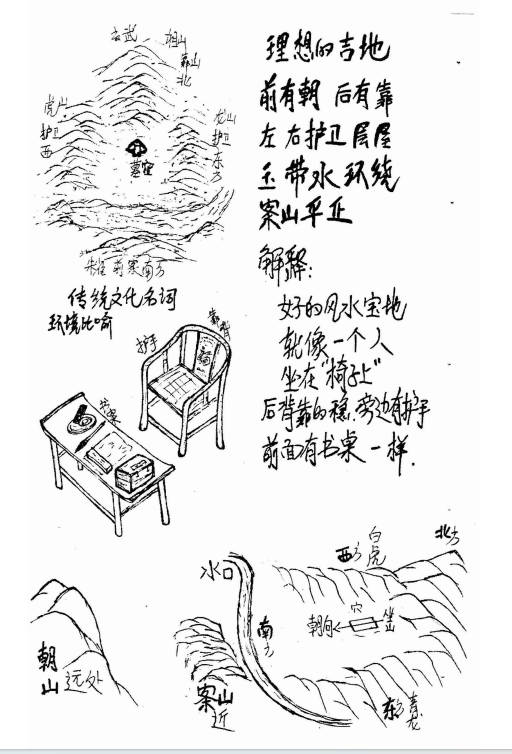 玄武
祖山
靠山
北
虎山
护卫
西
龙山
护卫
东方
墓穴
朱雀 前案南方
传统文化名词
环境比喻
理想的吉地
前有朝 后有靠
左右护卫层层
玉带水环绕
案山平正
解释:
好的风水宝地
就像一个人
坐在"椅子上"
后背靠的稳,旁边有扶手
前面有书桌一样.
靠背
扶手
福
书桌
朝山
远处
水口
南方
案山
近
西方
白虎
北方
穴
朝向
坐山
东方
青龙